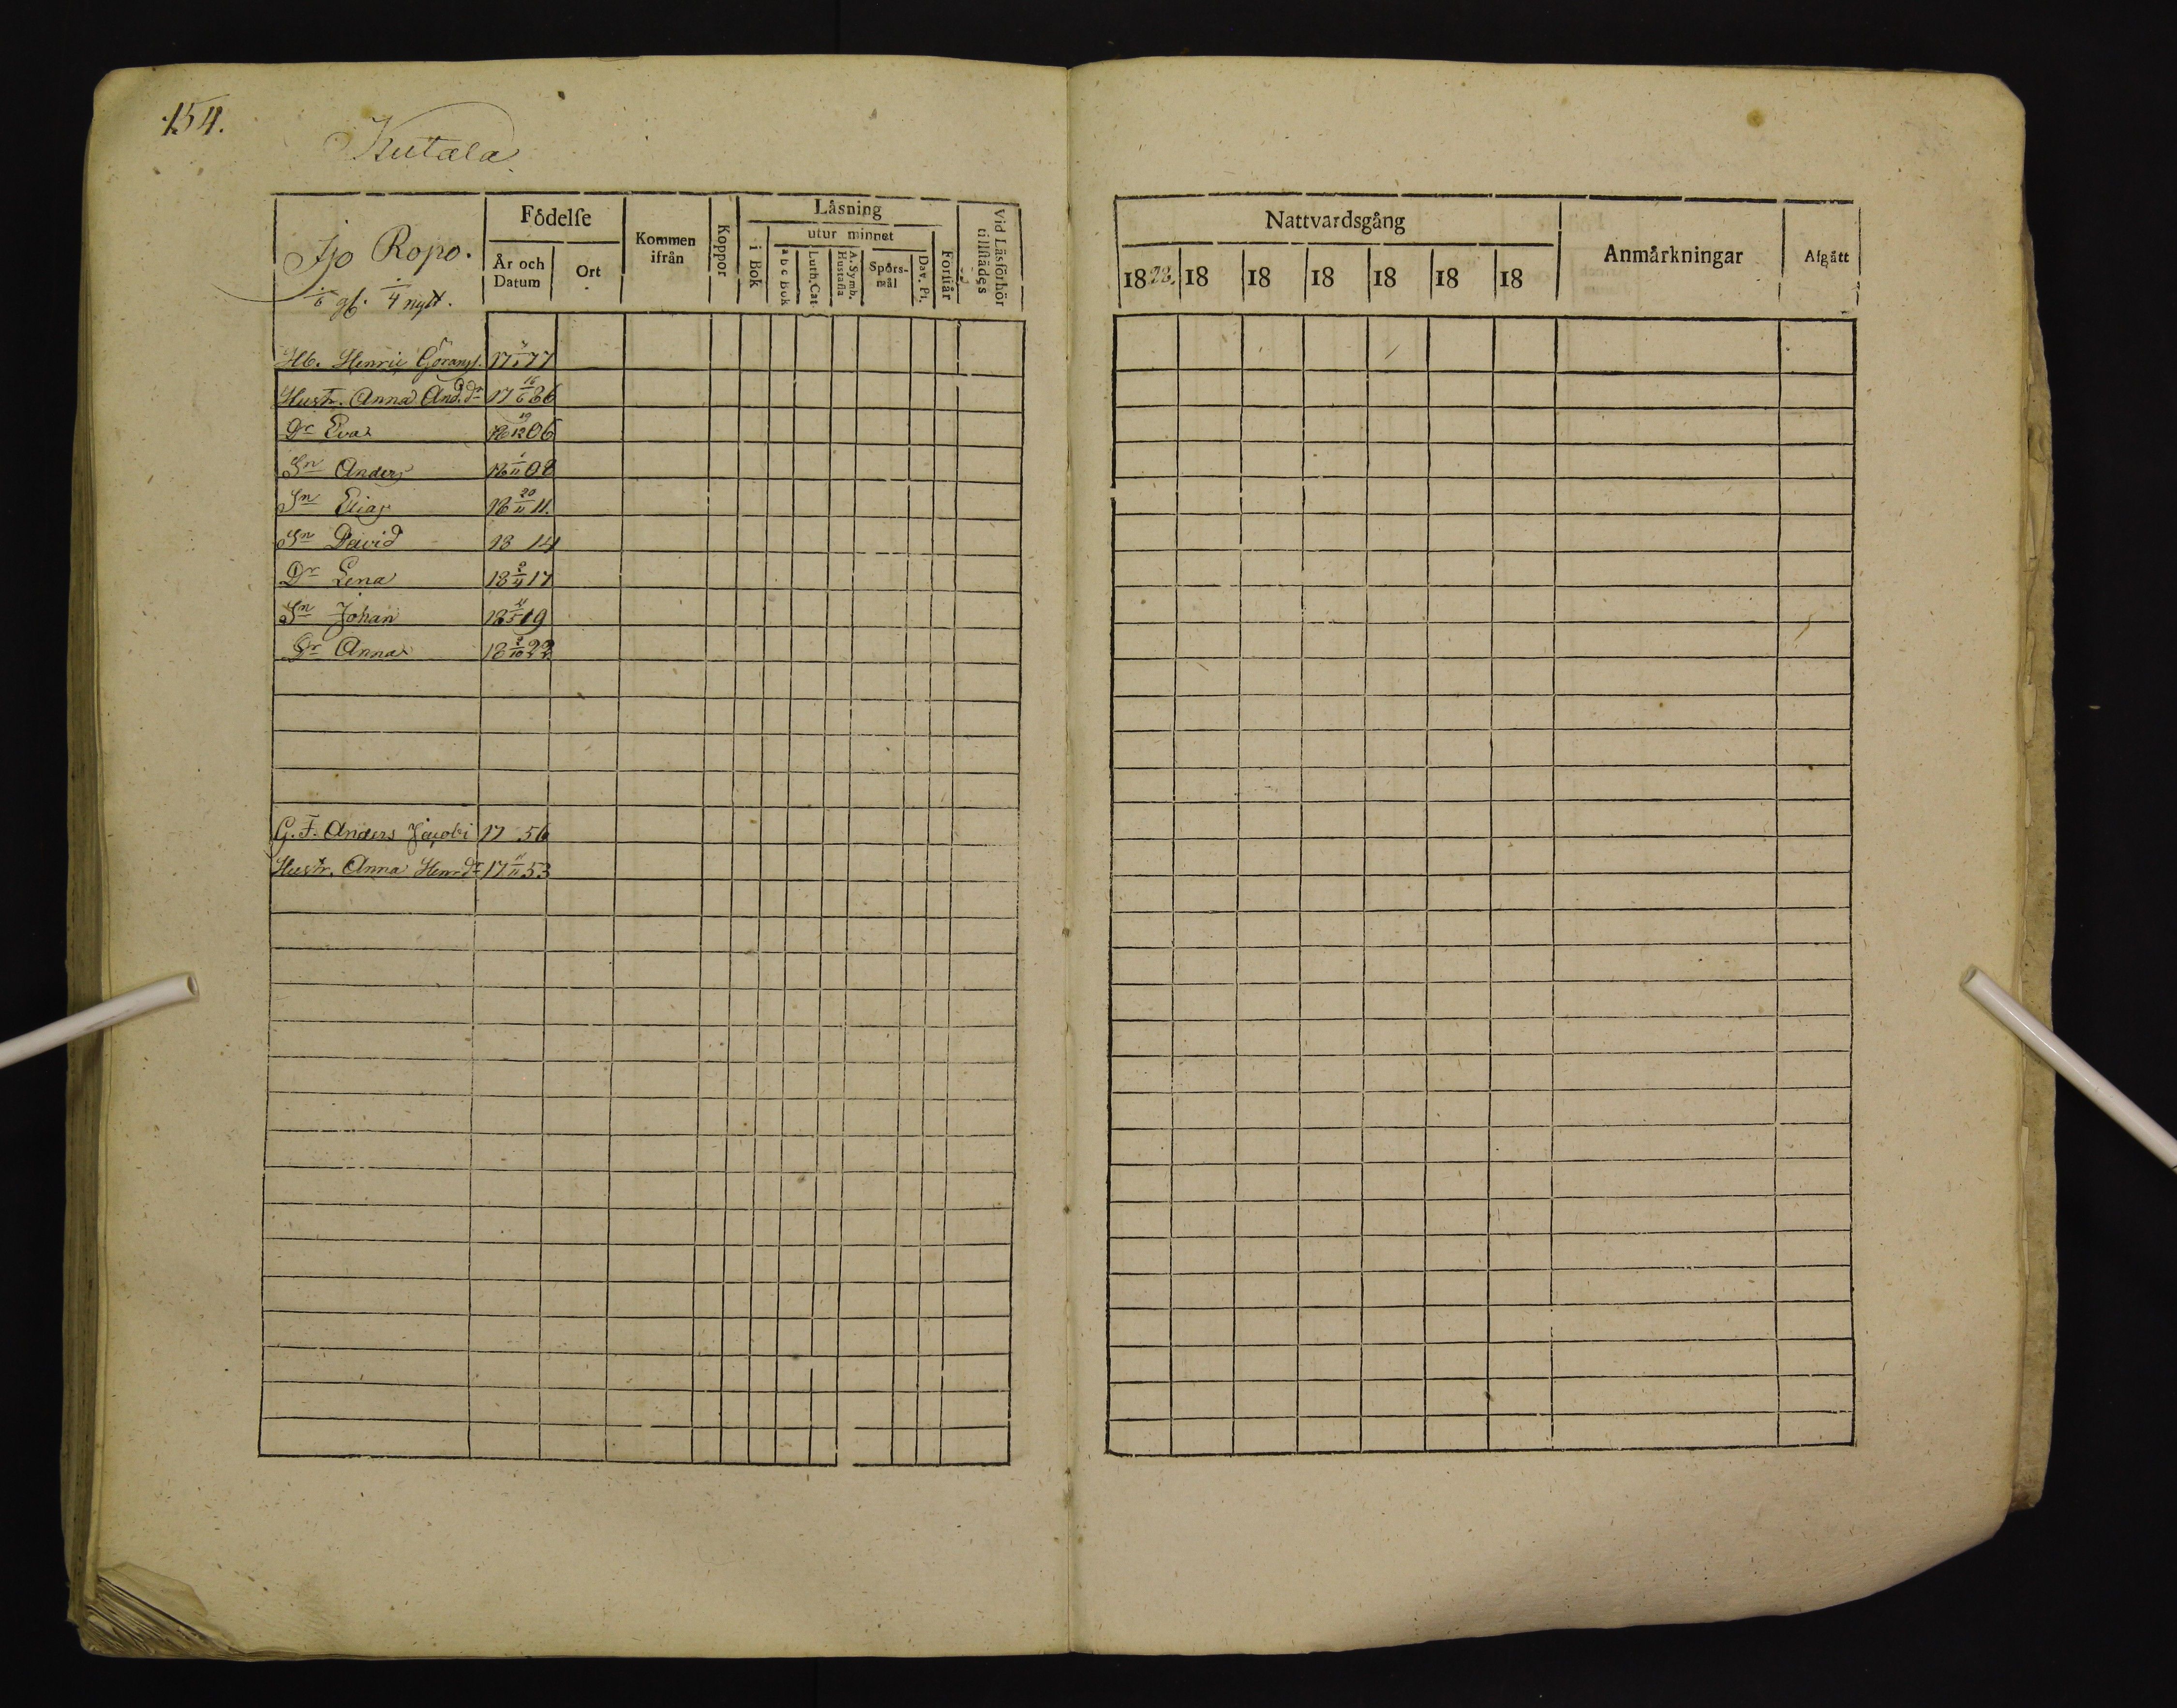 154.
Kutala
Födelse
Kommen ifrån
Koppor
Läsning
utur minnet
i Bok
a b c Bok
Luth. Cat.
A. Symb. Hustafla
Spörs-mål
Dav. Ps.
Förstår
Vid Läsförhör tillstädes
År och Datum
Ort
Nattvardsgång
Anmärkningar
Afgått
1823. 18 18 18 18 18 18
Ijo Ropo.
1/6 gl. 1/4 nytt.
Hb. Henric Göransf. 17 77
Hustr. Anna And.dr 17 16/6 86
Dr Eva 18 19/12 06
Sn Anders 18 1/11 08
Sn Elias 18 20/11 11.
Sn David 18 14
Dr Lena 18 2/11 17
Sn Johan 18 19
Dr Anna 18 2/10 22
G. F. Anders Jacobi 17 56
Hustr. Anna Henr.dr 17 11/11 53